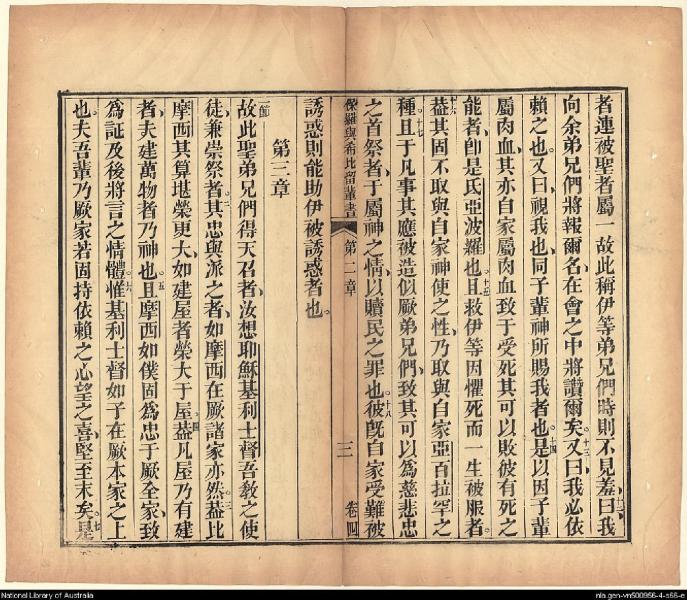 者連被聖者屬一故此稱伊等弟兄們時則不見羞。十二曰我
向余弟兄們將報爾名、在會之中將讚爾矣。十三又曰我必依
賴之也。又曰、視我也、同子輩神所賜我者也。十四是以因子輩
屬肉血、其亦自家屬肉血致于受死其可以敗彼有死之
能者、卽是氐亞波羅也。十五且救伊等因懼死而一生被服者。
十六蓋其固不取與自家神使之性、乃取與自家亞百拉罕之
種。十七且于凡事其應被造似厥弟兄們、致其可以為慈悲忠
之首祭者、于屬神之情、以贖民之罪也。十八彼旣自家受難被
保羅與希比留輩書 第二章 三 卷四
誘惑則能助伊被誘惑者也。
第三章
一節故此聖弟兄們得天召者、汝想耶穌基利士督吾教之使
徒、兼崇祭者。二其忠與派之者、如摩西在厥諸家亦然。三蓋比
摩西其算堪榮更大、如建屋者榮大于屋。四蓋凡屋乃有建
者、夫建萬物者乃神也。五且摩西如僕固為忠于厥全家、致
為証及後將言之情體。六惟基利士督如子在厥本家之上
也。夫吾輩乃厥家若固持依賴之心望之喜、堅至末矣。七是
National Library of Australia
nla.gen-vn500956-4-s66-e